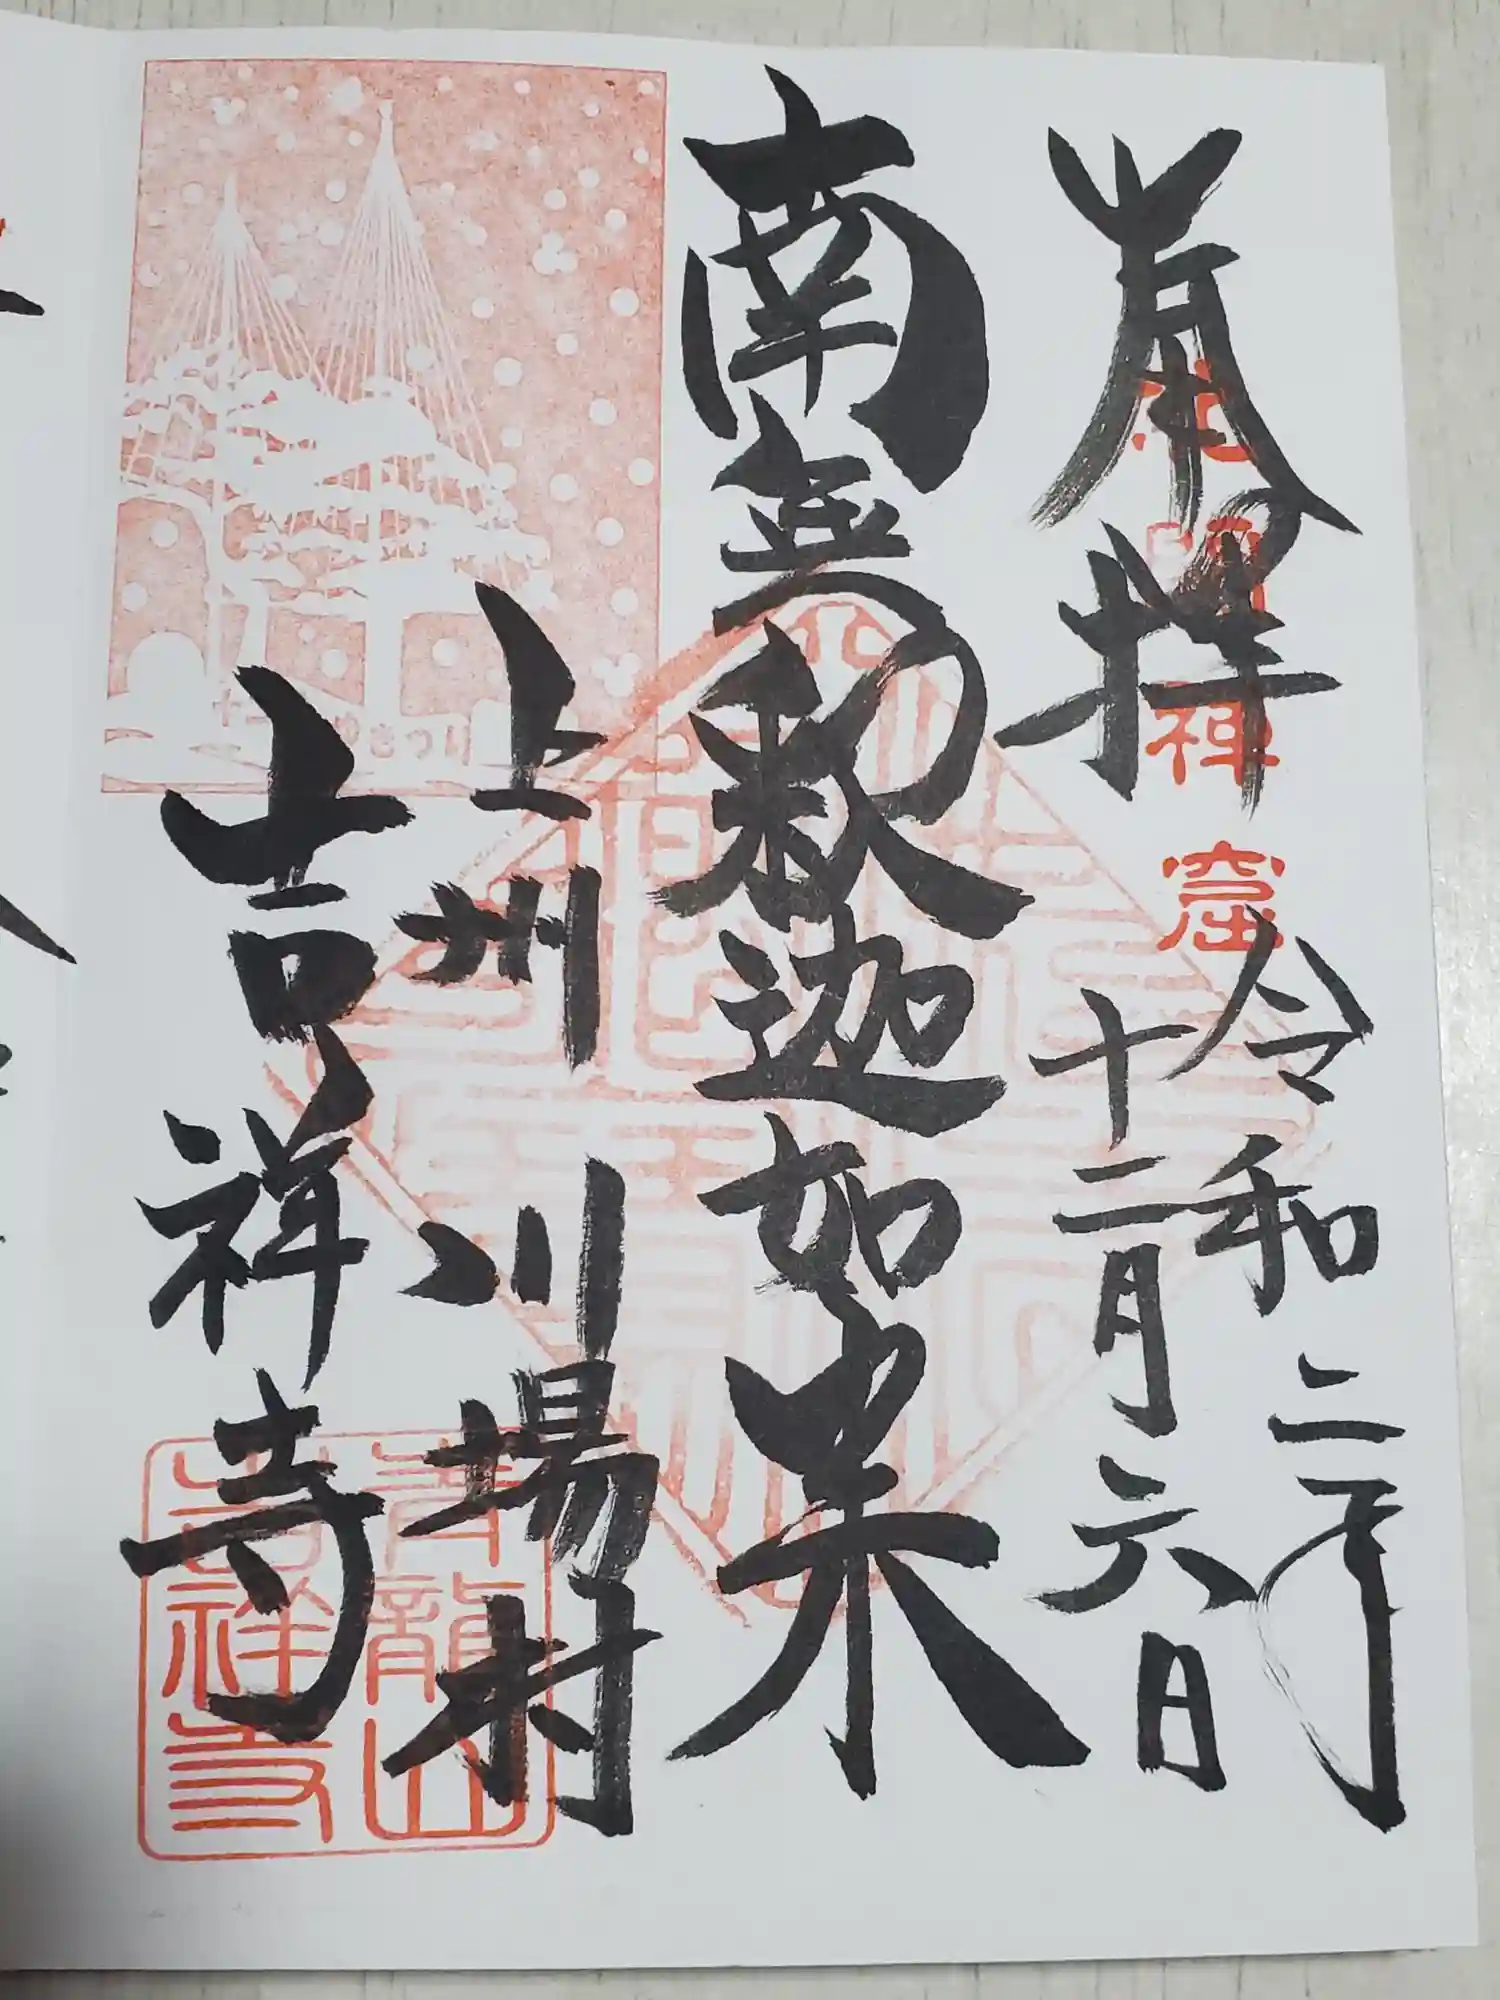 奉拝
禅窟
令和二年
十二月六日
南無釈迦如来
上州 川場村
吉祥寺
青龍山
吉祥寺